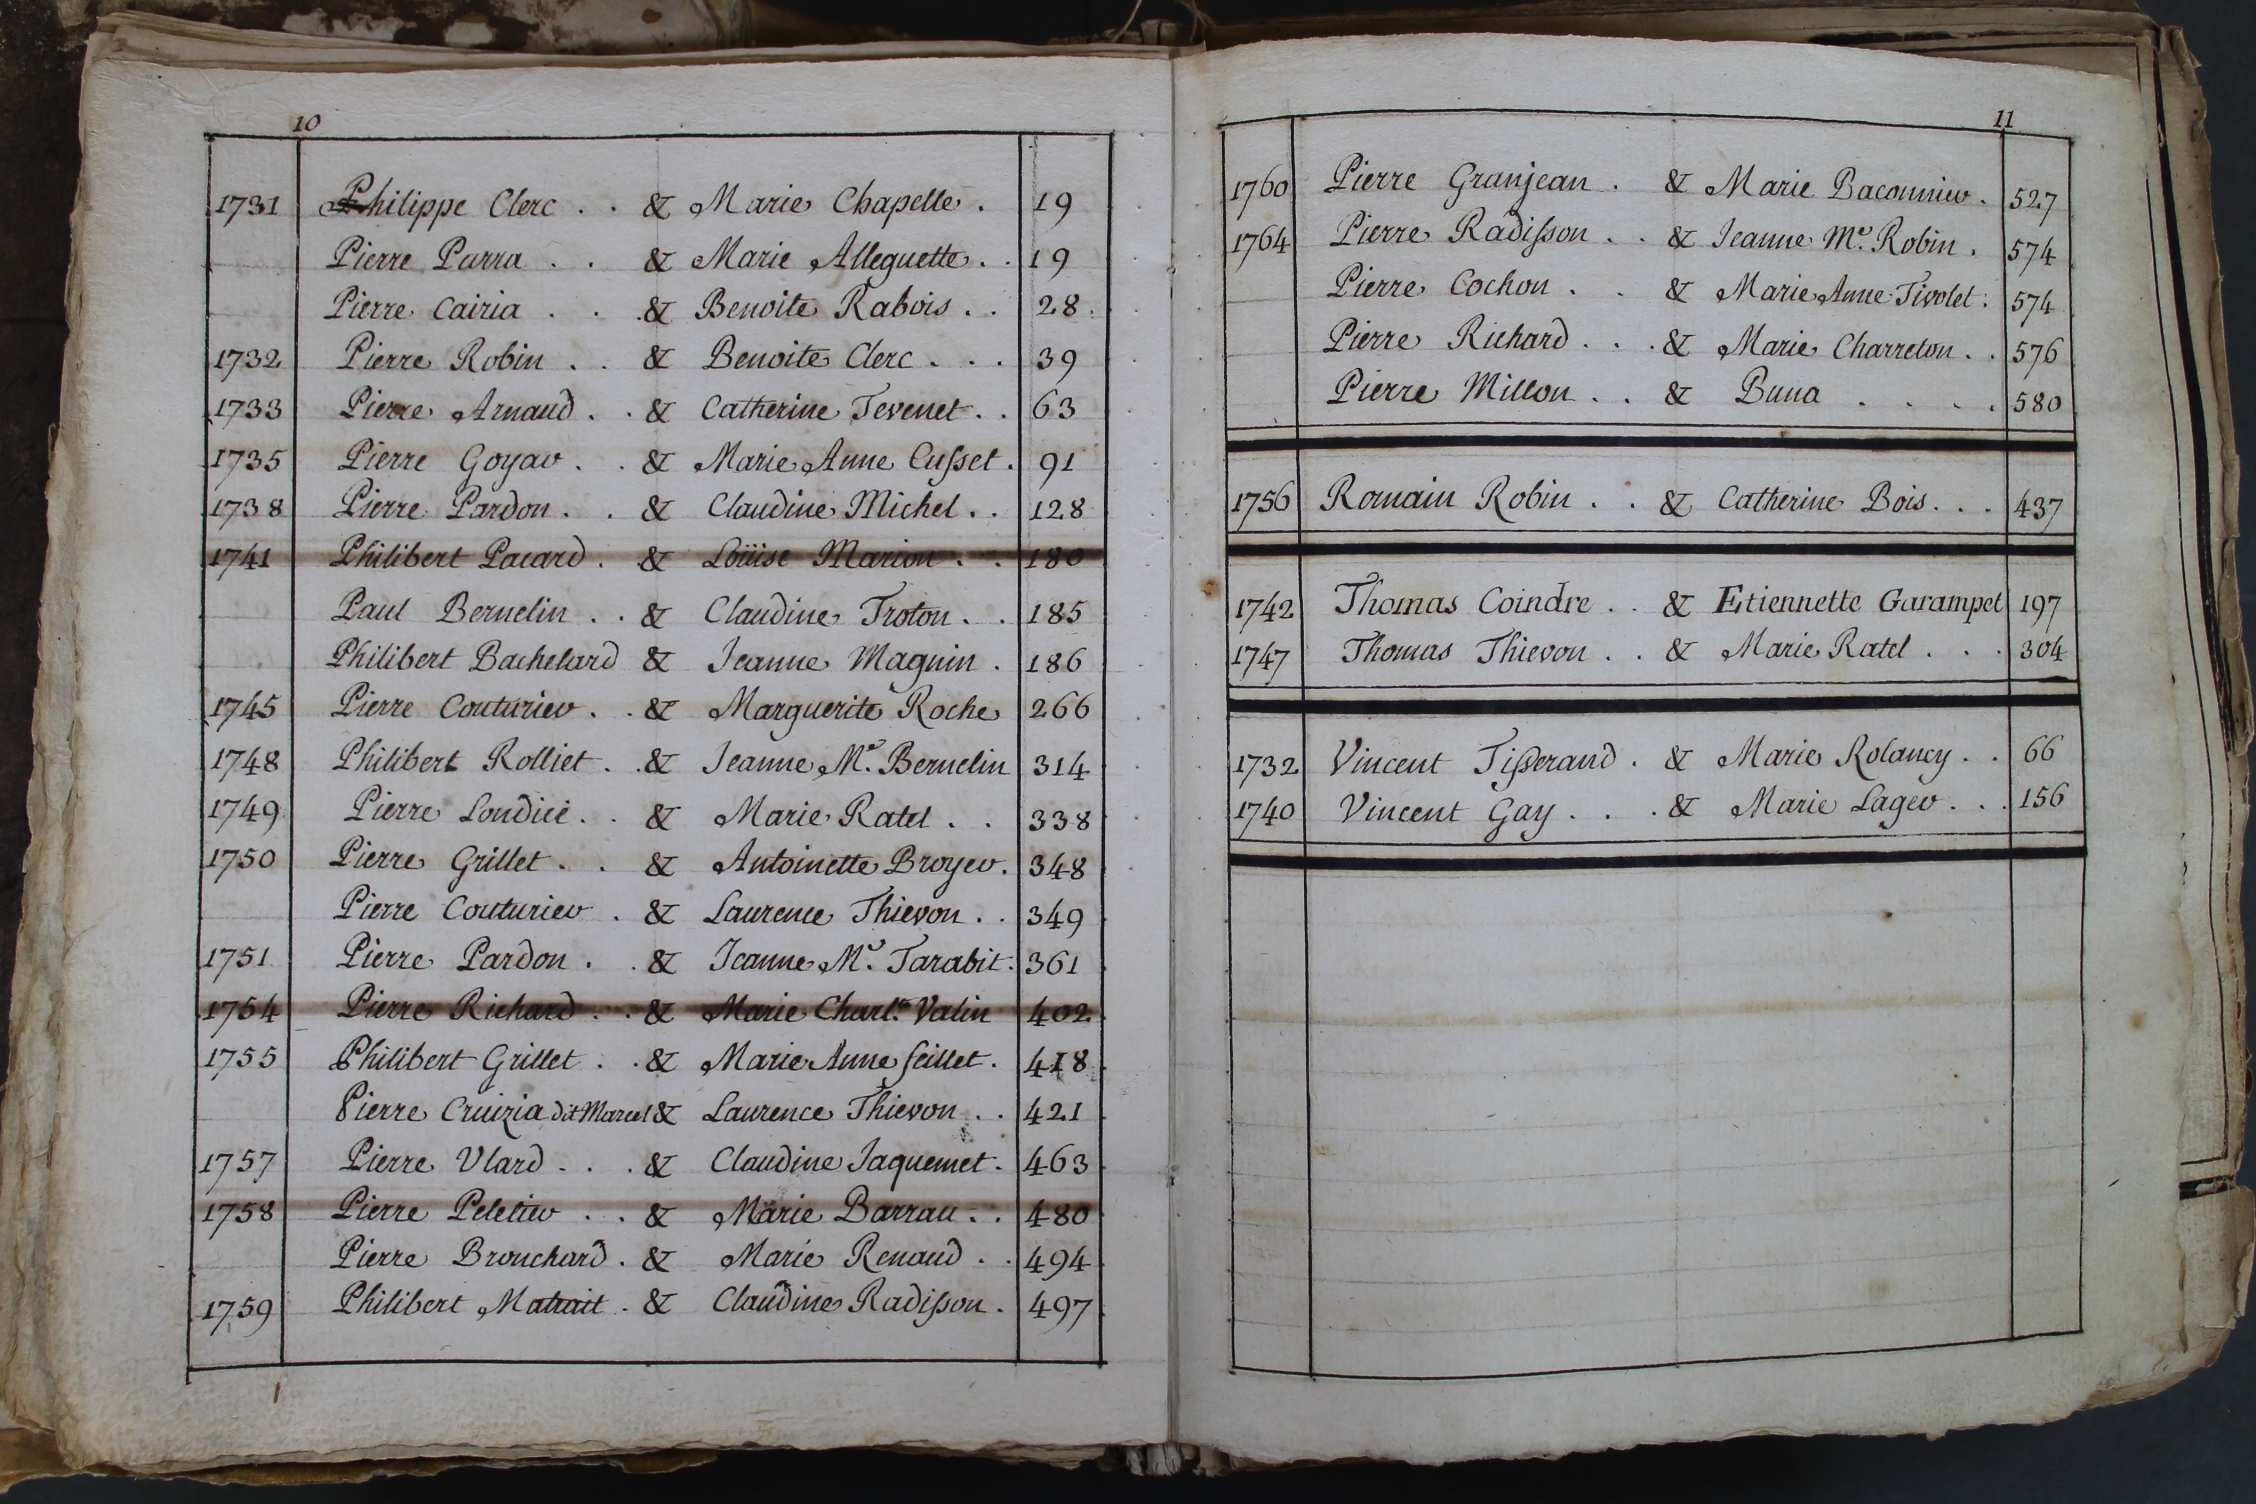 10
1731 Philippe Clerc . . & Marie Chapelle . 19
Pierre Parra . . & Marie Alleguette . . 19
Pierre Cairia . . . & Benoite Rabois . . 28
1732 Pierre Robin . . & Benoite Clerc . . . 39
1733 Pierre Arnaud . . & Catherine Tevenet . . 63
1735 Pierre Goyar . . & Marie Anne Cusset . 91
1738 Pierre Pardon . . & Claudine Michel . . 128
1741 Philibert Pacard . & Loüise Marion . . 180
Paul Bernelin . . & Claudine Troton . . 185
Philibert Bachelard & Jeanne Magnin . 186
1745 Pierre Couturier . . & Marguerite Roche 266
1748 Philibert Rolliet . . & Jeanne Me. Bernelin 314
1749 Pierre Londice . . & Marie Ratel . . 338
1750 Pierre Grillet . . & Antoinette Broyer . 348
Pierre Couturier . & Laurence Thievon . . 349
1751 Pierre Pardon . . & Jeanne Me. Tarabit . 361
1754 Pierre Richard . . & Marie Charl.te Valin 402
1755 Philibert Grillet . . & Marie Anne feillet . 418
Pierre Cruizia dit Marcel & Laurence Thievon . . 421
1757 Pierre Vlard . . . & Claudine Jaquemet . 463
1758 Pierre Peletier . . & Marie Barrau . . 480
Pierre Brouchard . & Marie Renaud . . 494
1759 Philibert Matrait . & Claudine Radisson . 497
11
1760 Pierre Granjean . & Marie Baconnier . 527
1764 Pierre Radisson . . & Jeanne Me. Robin . 574
Pierre Cochon . . & Marie Anne Tivolet . 574
Pierre Richard . . . & Marie Charreton . . 576
Pierre Millon . . & Buna . . . . 580
1756 Romain Robin . . & Catherine Bois . . . 437
1742 Thomas Coindre . . & Etiennette Garampel 197
1747 Thomas Thievon . . & Marie Ratel . . . 304
1732 Vincent Tisserand . & Marie Rolancy . . 66
1740 Vincent Gay . . . & Marie Lager . . . 156